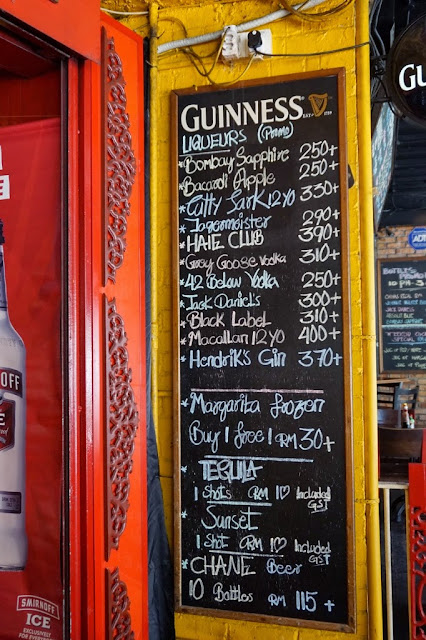 GUINNESS
ESTD 1759
LIQUEURS (Promo)
*Bombay Sapphire 250+
*Bacardi Apple 250+
*Cutty Sark 12YO 330+
*Jagermeister 290+
HAIE CLUB 390+
*Grey Goose Vodka 310+
*42 Below Vodka 250+
*Jack Daniel's 300+
*Black Label 310+
*Macallan 12YO 400+
*Hendrik's Gin 370+
*Margarita frozen
Buy 1 free 1 RM 30+
*TEQUILA
1 Shots RM 10 Included GST
*Sunset
1 Shot RM 10 Included GST
*CHANG Beer
10 Bottles RM 115+
SMIRNOFF
ICE
EXCLUSIVELY
FOR EVERYONE
NOFF
GU
ADT